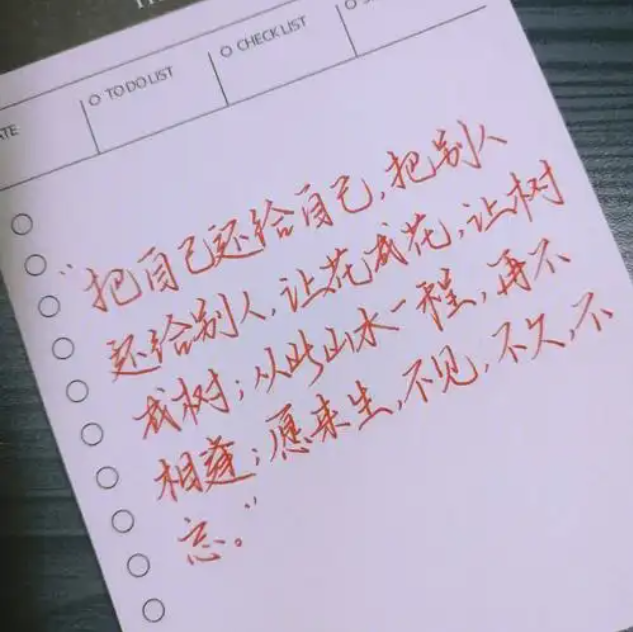 ATE
TO DO LIST
CHECK LIST
“把自己还给自己,把别人
还给别人,让花成花,让树
成树;从此山水一程,再不
相逢;愿来生,不见,不欠,不
忘。”